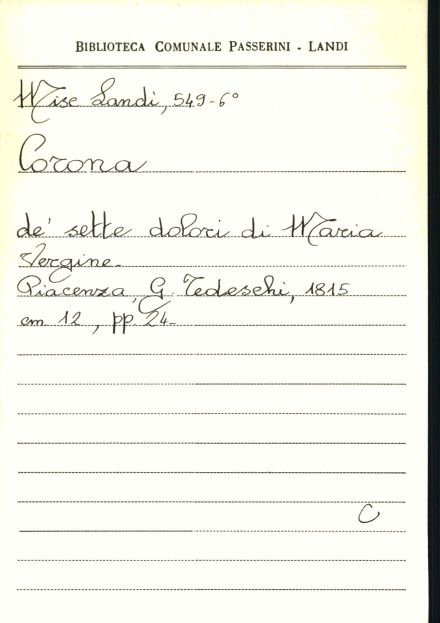 BIBLIOTECA COMUNALE PASSERINI - LANDI
Misc Landi, 549-6°
Corona
de' sette dolori di Maria
Vergine.
Piacenza, G. Tedeschi, 1815
cm 12, pp. 24-
C